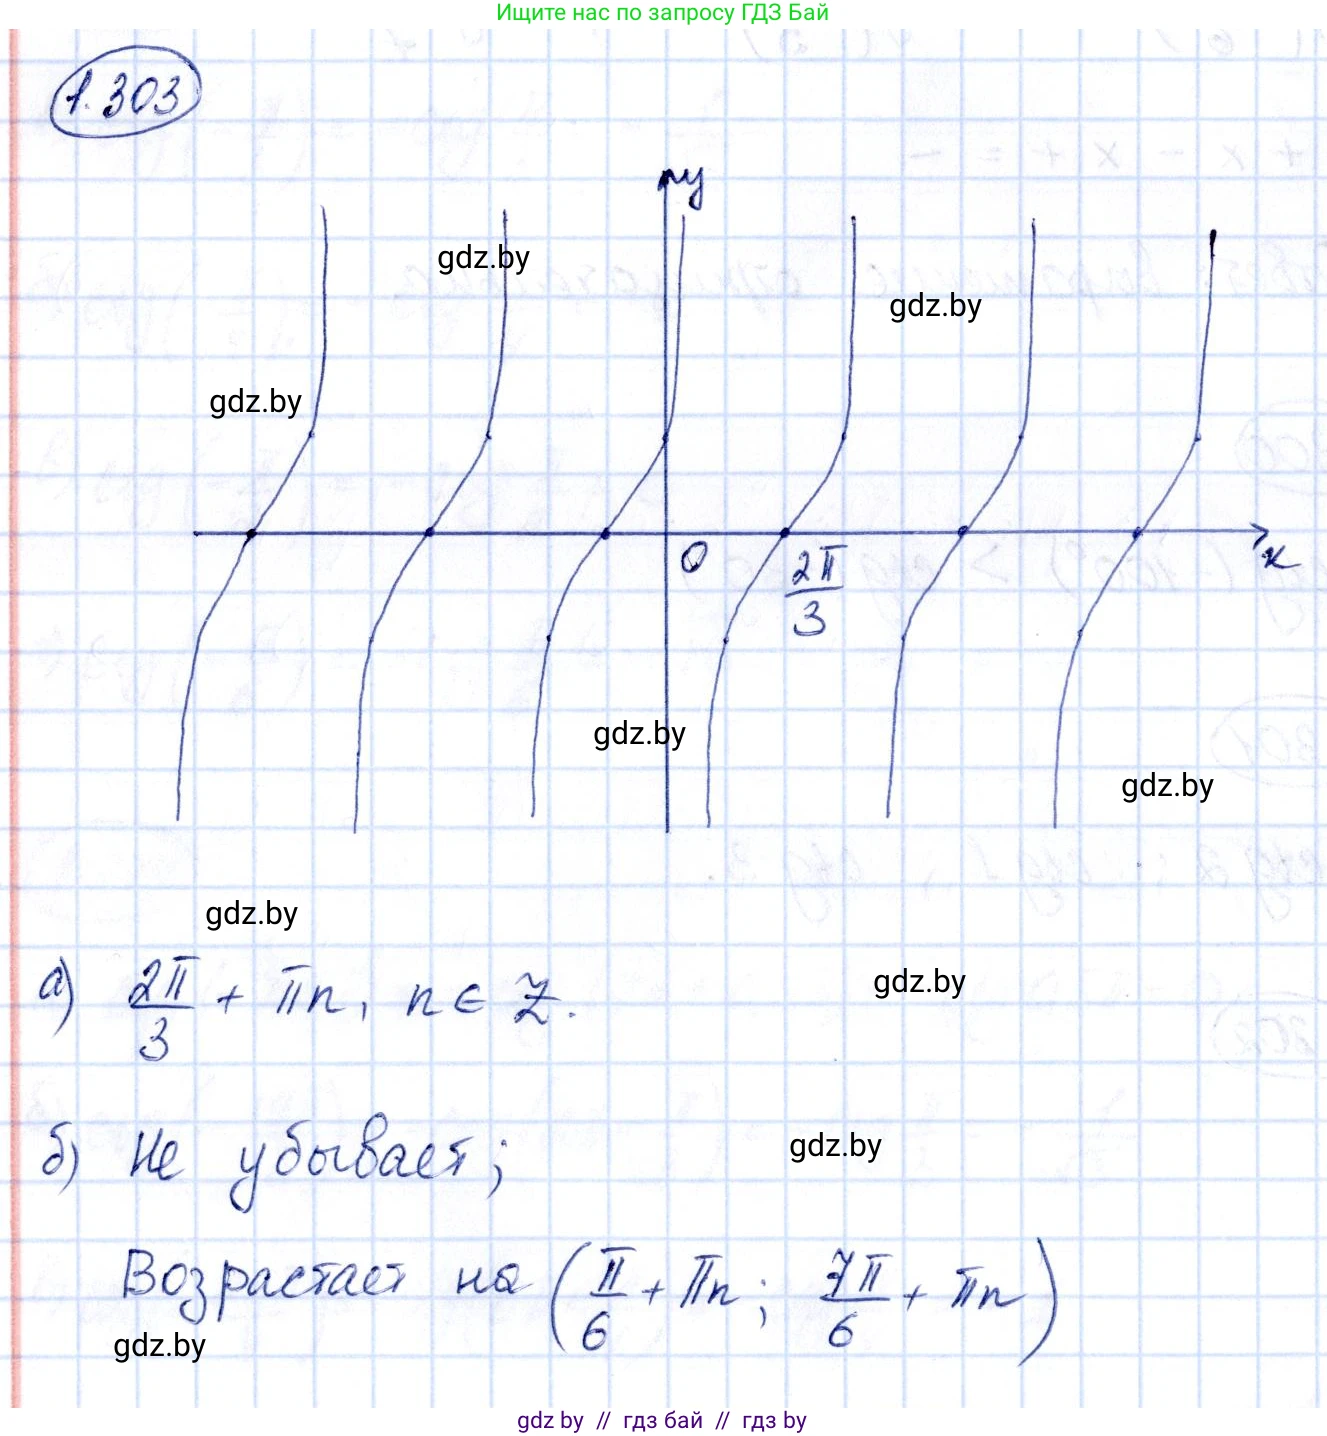 Ищите нас по запросу ГДЗ Бай
1.303
y
gdz.by
gdz.by
gdz.by
0
x
2π/3
gdz.by
gdz.by
gdz.by
а) 2π/3 + πn, n ∈ Z.
gdz.by
б) Не убывает;
gdz.by
Возрастает на (π/6 + πn; 7π/6 + πn)
gdz.by
gdz by // гдз бай // gdz by